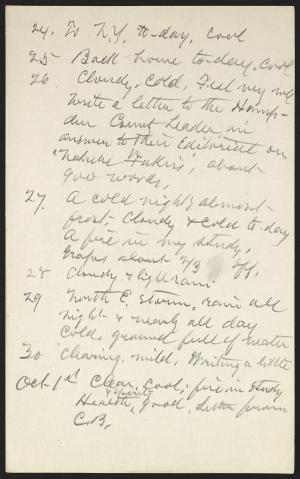 24. To N.Y. to-day, cool
25 Back home to-day, cool
26 Cloudy, cold, Feel very well
Write a letter to the Hamp-
den Count Leader, in
answer to their Editorial on
"Nature Fakirs", about
900 words,
27. A cold night, almost
frost, Cloudy & cold to-day
A fire in my study,
Grapes about 2/3 off.
28 Cloudy & light rain.
29 North E. storm, rain all
night & nearly all day
Cold, ground full of water
30 Clearing, mild, Writing a little
Oct 1st Clear, cool, fire in study
Health & spirits good, Letter from
C.B.